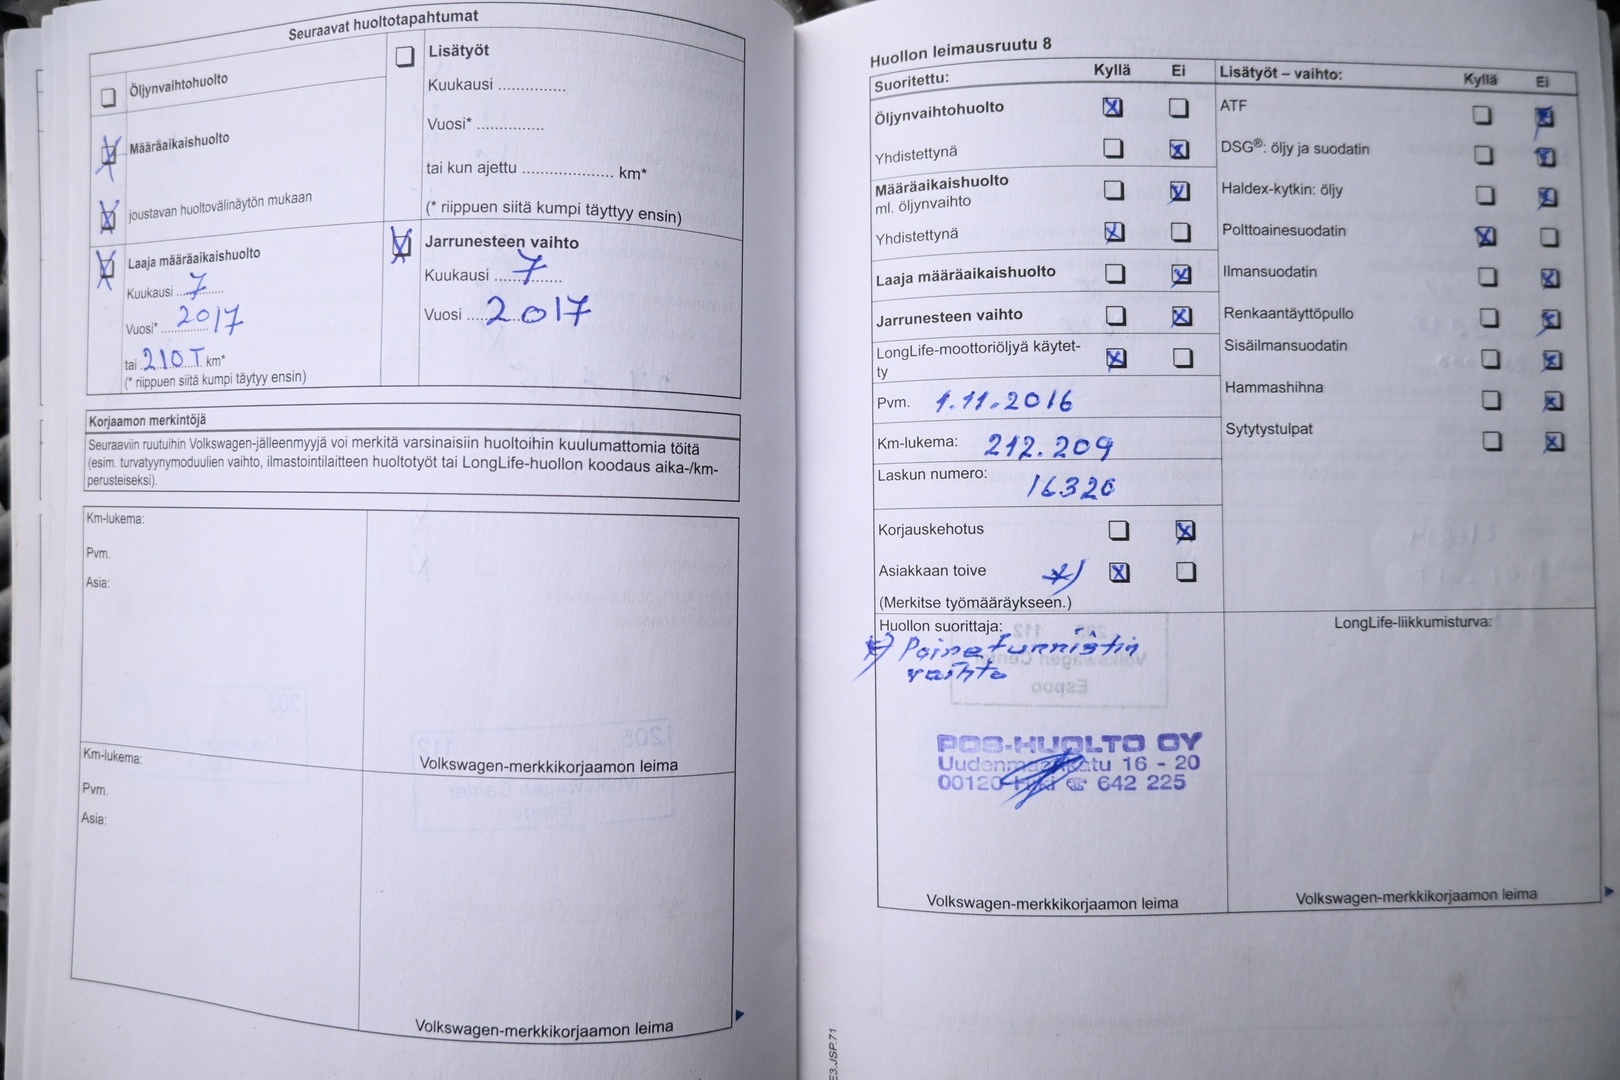 Seuraavat huoltotapahtumat
Öljynvaihtohuolto
Määräaikaishuolto
joustavan huoltovälinäytön mukaan
Laaja määräaikaishuolto
Kuukausi ...7.......
Vuosi* 2017
tai 210 T km*
(* riippuen siitä kumpi täytyy ensin)
Lisätyöt
Kuukausi ...............
Vuosi* ...............
tai kun ajettu .................... km*
(* riippuen siitä kumpi täyttyy ensin)
Jarrunesteen vaihto
Kuukausi ...7.......
Vuosi ....2017
Korjaamon merkintöjä
Seuraaviin ruutuihin Volkswagen-jälleenmyyjä voi merkitä varsinaisiin huoltoihin kuulumattomia töitä
(esim. turvatyynymoduulien vaihto, ilmastointilaitteen huoltotyöt tai LongLife-huollon koodaus aika-/km-
perusteiseksi).
Km-lukema:
Pvm.
Asia:
Volkswagen-merkkikorjaamon leima
Km-lukema:
Pvm.
Asia:
Volkswagen-merkkikorjaamon leima
Huollon leimausruutu 8
Suoritettu: Kyllä Ei
Öljynvaihtohuolto
Yhdistettynä
Määräaikaishuolto
ml. öljynvaihto
Yhdistettynä
Laaja määräaikaishuolto
Jarrunesteen vaihto
LongLife-moottoriöljyä käytet-
ty
Pvm. 1.11.2016
Km-lukema: 212.209
Laskun numero:
16320
Korjauskehotus
Asiakkaan toive *)
(Merkitse työmääräykseen.)
Huollon suorittaja:
*) Painetunnistin
vaihto
POS-HUOLTO OY
Uudenmaankatu 16 - 20
00120 Hki ☎ 642 225
Volkswagen-merkkikorjaamon leima
Lisätyöt – vaihto: Kyllä Ei
ATF
DSG®: öljy ja suodatin
Haldex-kytkin: öljy
Polttoainesuodatin
Ilmansuodatin
Renkaantäyttöpullo
Sisäilmansuodatin
Hammashihna
Sytytystulpat
LongLife-liikkumisturva:
Volkswagen-merkkikorjaamon leima
E3.JSP.71